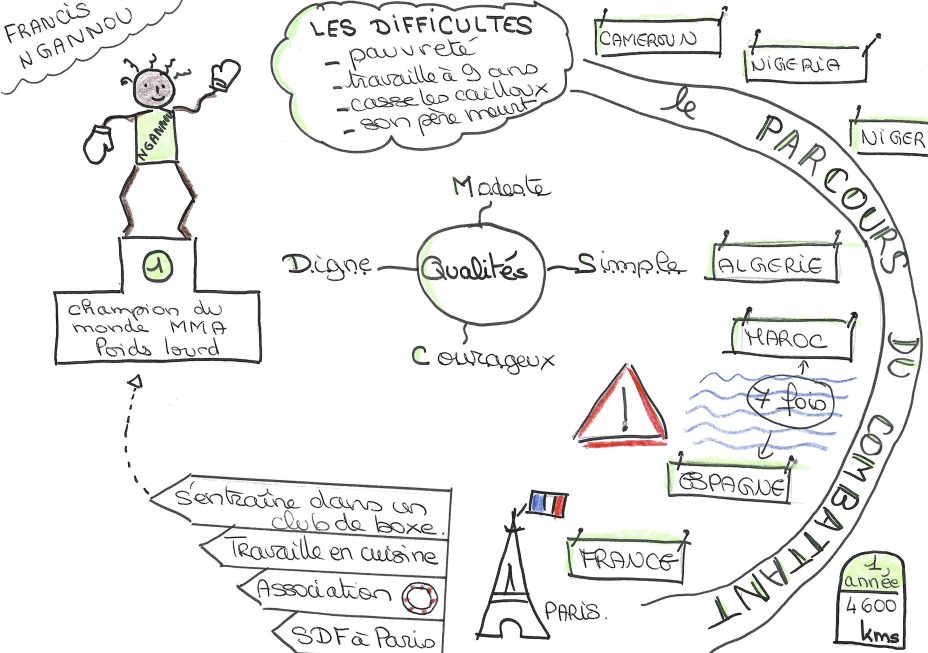 FRANCIS
NGANNOU
NGANNOU
1
champion du
monde MMA
Poids lourd
LES DIFFICULTES
- pauvreté
- travaille à 9 ans
- casse les cailloux
- son père meurt
Modeste
Digne
Qualités
Simple
Courageux
le PARCOURS DU COMBATTANT
CAMEROUN
NIGERIA
NIGER
ALGERIE
MAROC
7 fois
!
ESPAGNE
FRANCE
PARIS.
1
année
4600
kms
S'entraîne dans un
club de boxe.
Travaille en cuisine
Association
SDF à Paris